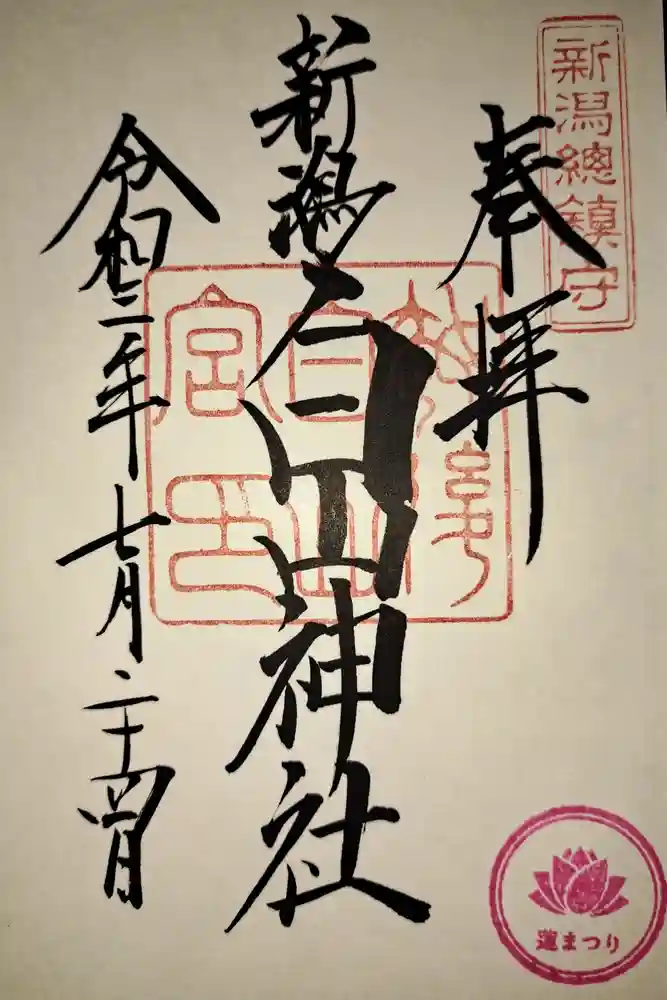 新潟總鎮守
奉拝
新潟白山神社
令和二年七月二十四日
白山
宮印
蓮まつり